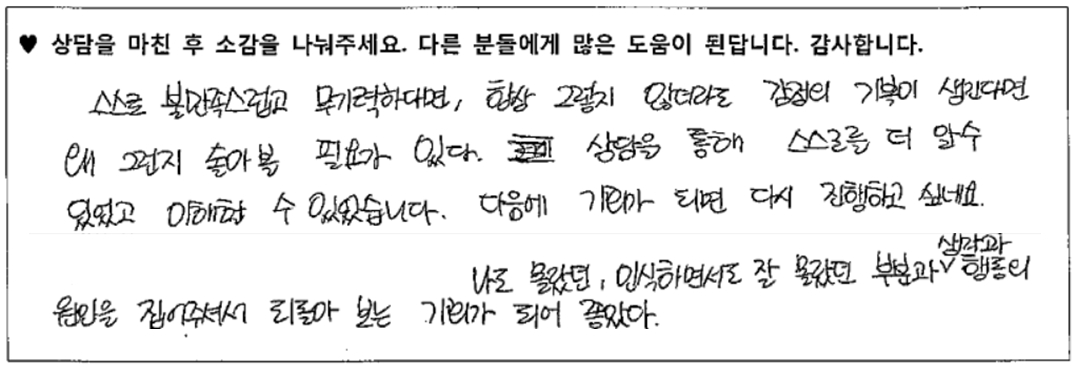 ♥ 상담을 마친 후 소감을 나눠주세요. 다른 분들에게 많은 도움이 된답니다. 감사합니다.
스스로 불만족스럽고 무기력하다면, 항상 그렇지 않더라도 감정의 기복이 생긴다면
왜 그런지 돌아볼 필요가 있다. 상담을 통해 스스로를 더 알수
있었고 이해할 수 있었습니다. 다음에 기회가 되면 다시 진행하고 싶네요.
나도 몰랐던, 인식하면서도 잘 몰랐던 부분과 생각과 행동의
원인을 집어주셔서 되돌아 보는 기회가 되어 좋았다.